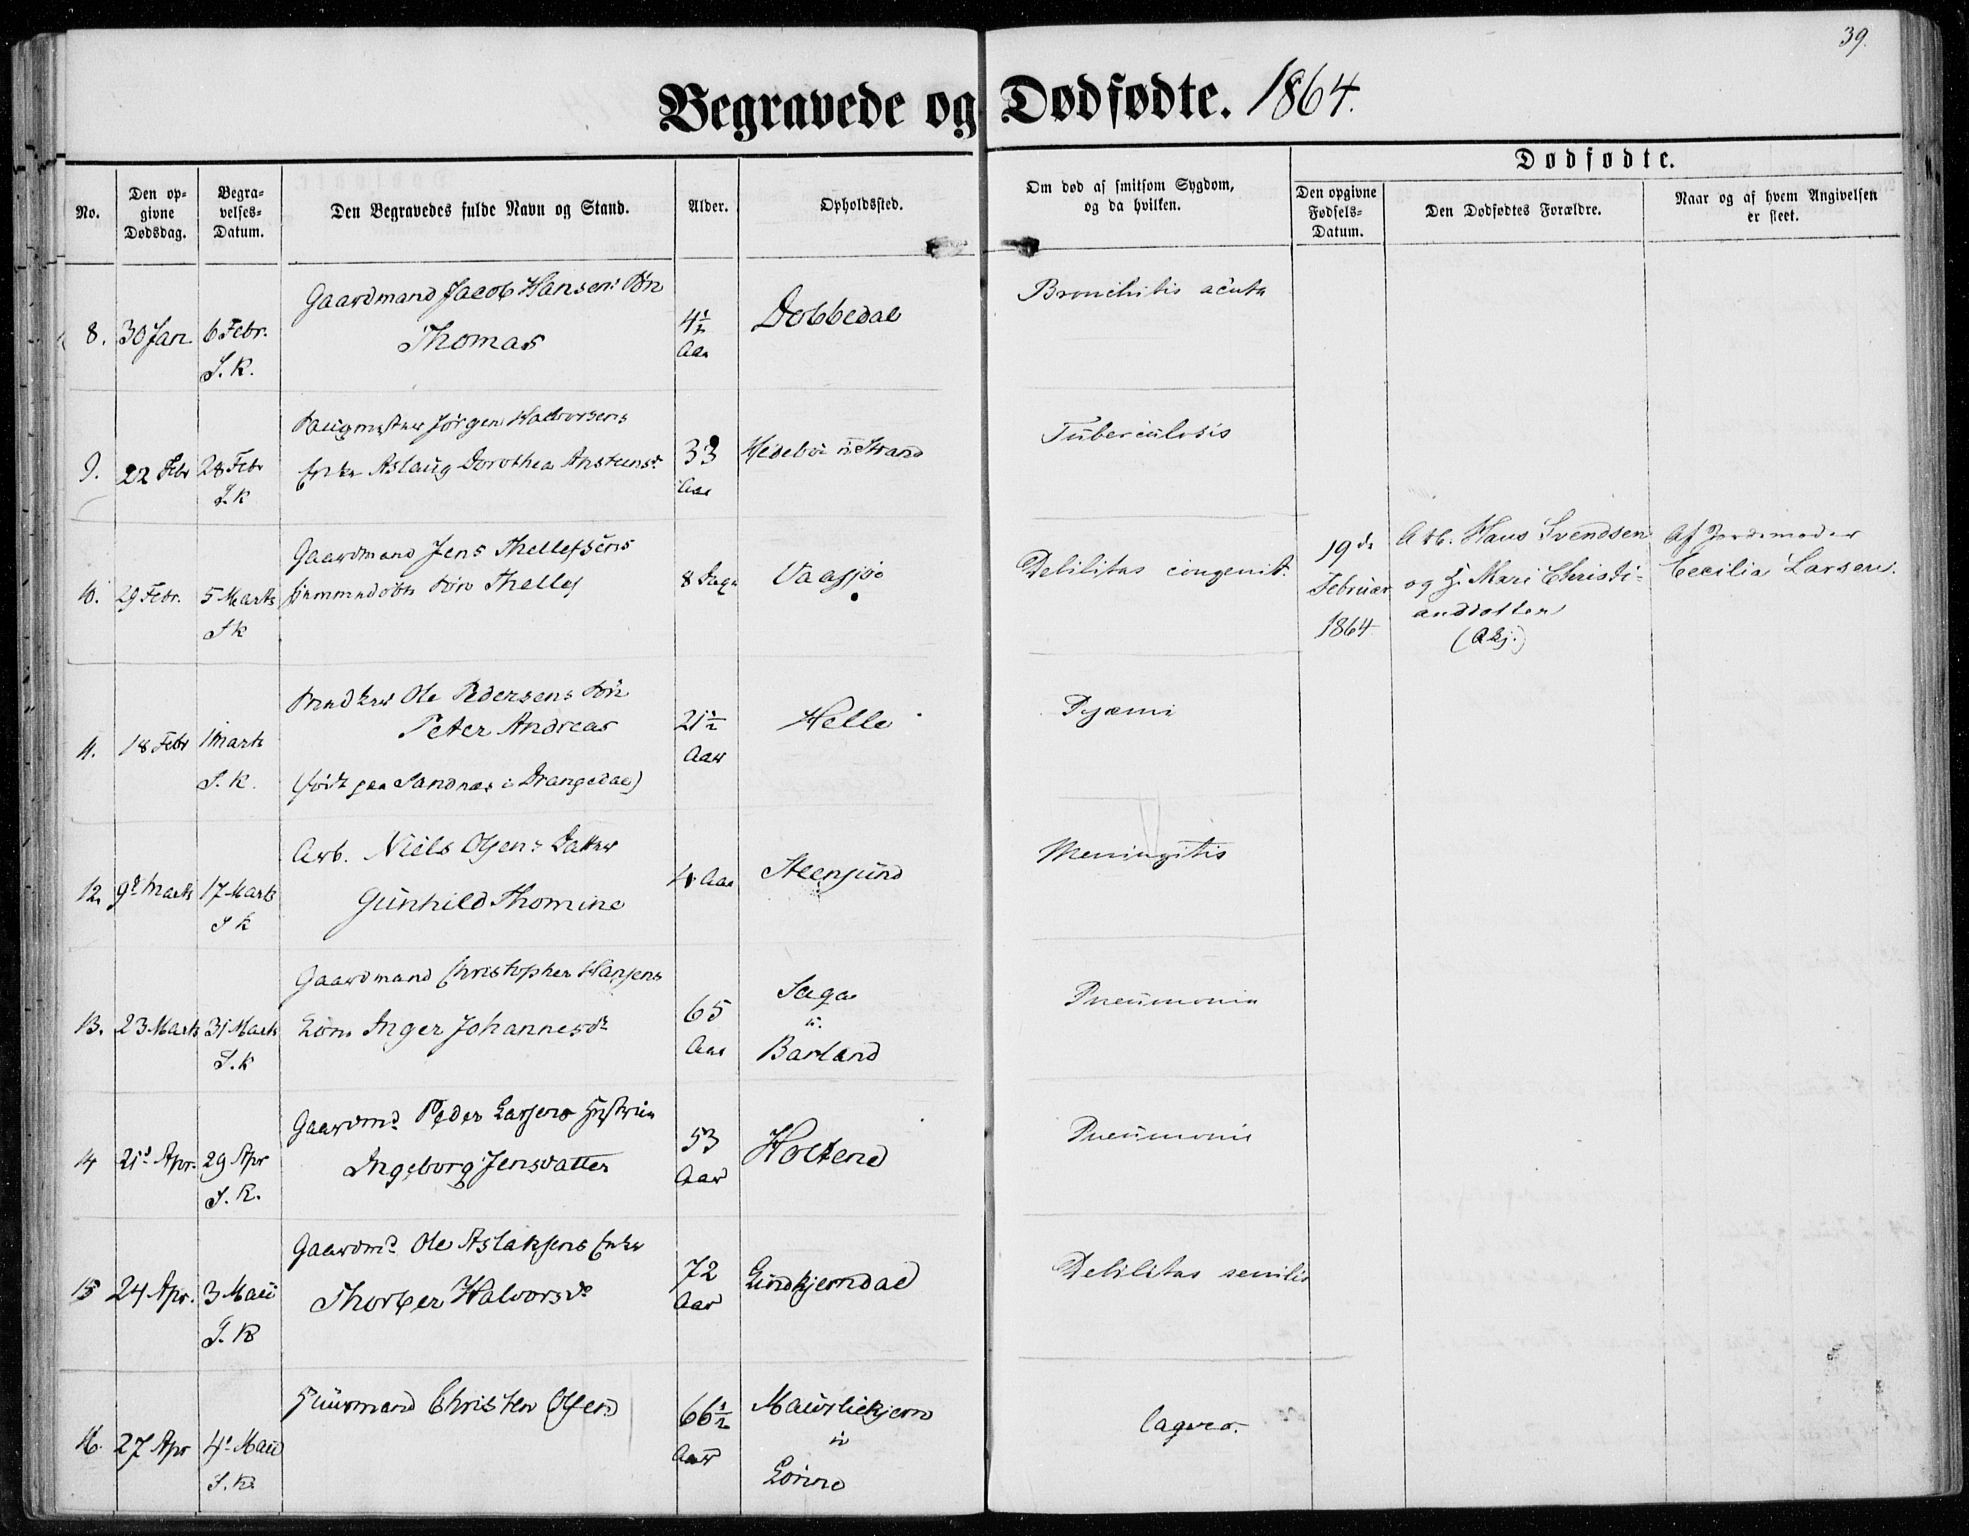 39.
Begravede og Dødfødte. 1864.
No.
Den opgivne Dødsdag.
Begravelses-Datum.
Den Begravedes fulde Navn og Stand.
Alder.
Opholdssted.
Om død af smitsom Sygdom, og da hvilken.
Dødfødte.
Den opgivne Fødsels-Datum.
Den Dødfødtes Forældre.
Naar og af hvem Angivelsen er skeet.
8. 30 Jan. 6 Febr. S. K.
Gaardmand Jacob Hansens Søn
Thomas
4½ Aar
Dobbedal
Bronchitis acuta
9. 22 Febr 28 Febr S. K
Jørgen Halvorsens
Enke Aslaug Dorothea Anstensd.
33 Aar
Strand
Tuberculosis
10. 29 Febr. 5 Marts S K
Gaardmand Jens Thellefsens
hjemmedøbte Søn Thellef
8 Dage
Vaasjø
Debilitas congenit.
19de Februar 1864
Arb. Hans Svendsen
og H. Mari Christi-
andatter
Af Jordemoder
Cecilia Larsen.
11. 18 Febr 1 Marts S. K.
Ole Pedersens Søn
Peter Andreas
(født paa Sandnæs i Drangedal)
21½ Aar
Helle
Pyæmi
12. 9d Marts 17 Marts S K
Arb. Niels Olsens Datter
Gunhild Thomine
4 Aar
Steensund
Meningitis
13. 23 Marts 31 Marts S. K
Gaardmand Christopher Hansens
Kone Inger Johannesdr
65 Aar
Saga
u.
Barland
Pneumonia
14 21d Apr. 29 Apr S. K.
Gaardmd Peder Larsens Hustru
Ingeborg Jensdatter
53 Aar
Holtene
Pneumonia
15 24 Apr. 3 Maii S. K
Gaardmd Ole Aslaksens Enke
Thorber Halvorsdr
72 Aar
Lindkjerndal
Debilitas senilis
16. 27 Apr 4d Maii S. K.
Huusmand Christen Olsen
66½ Aar
Maurliekjern
u